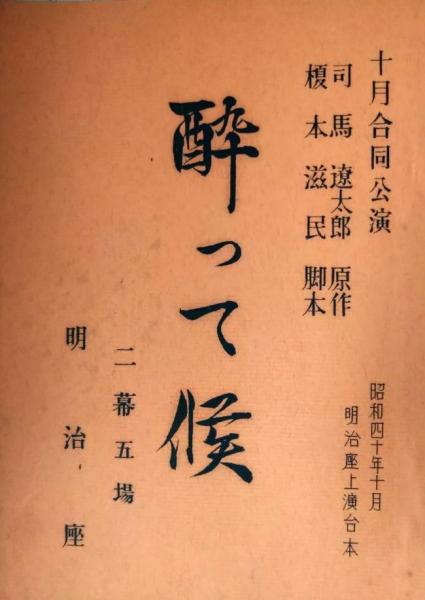 十月合同公演
司馬遼太郎 原作
榎本滋民 脚本
酔って候
二幕五場
明治座
昭和四十年十月
明治座上演台本